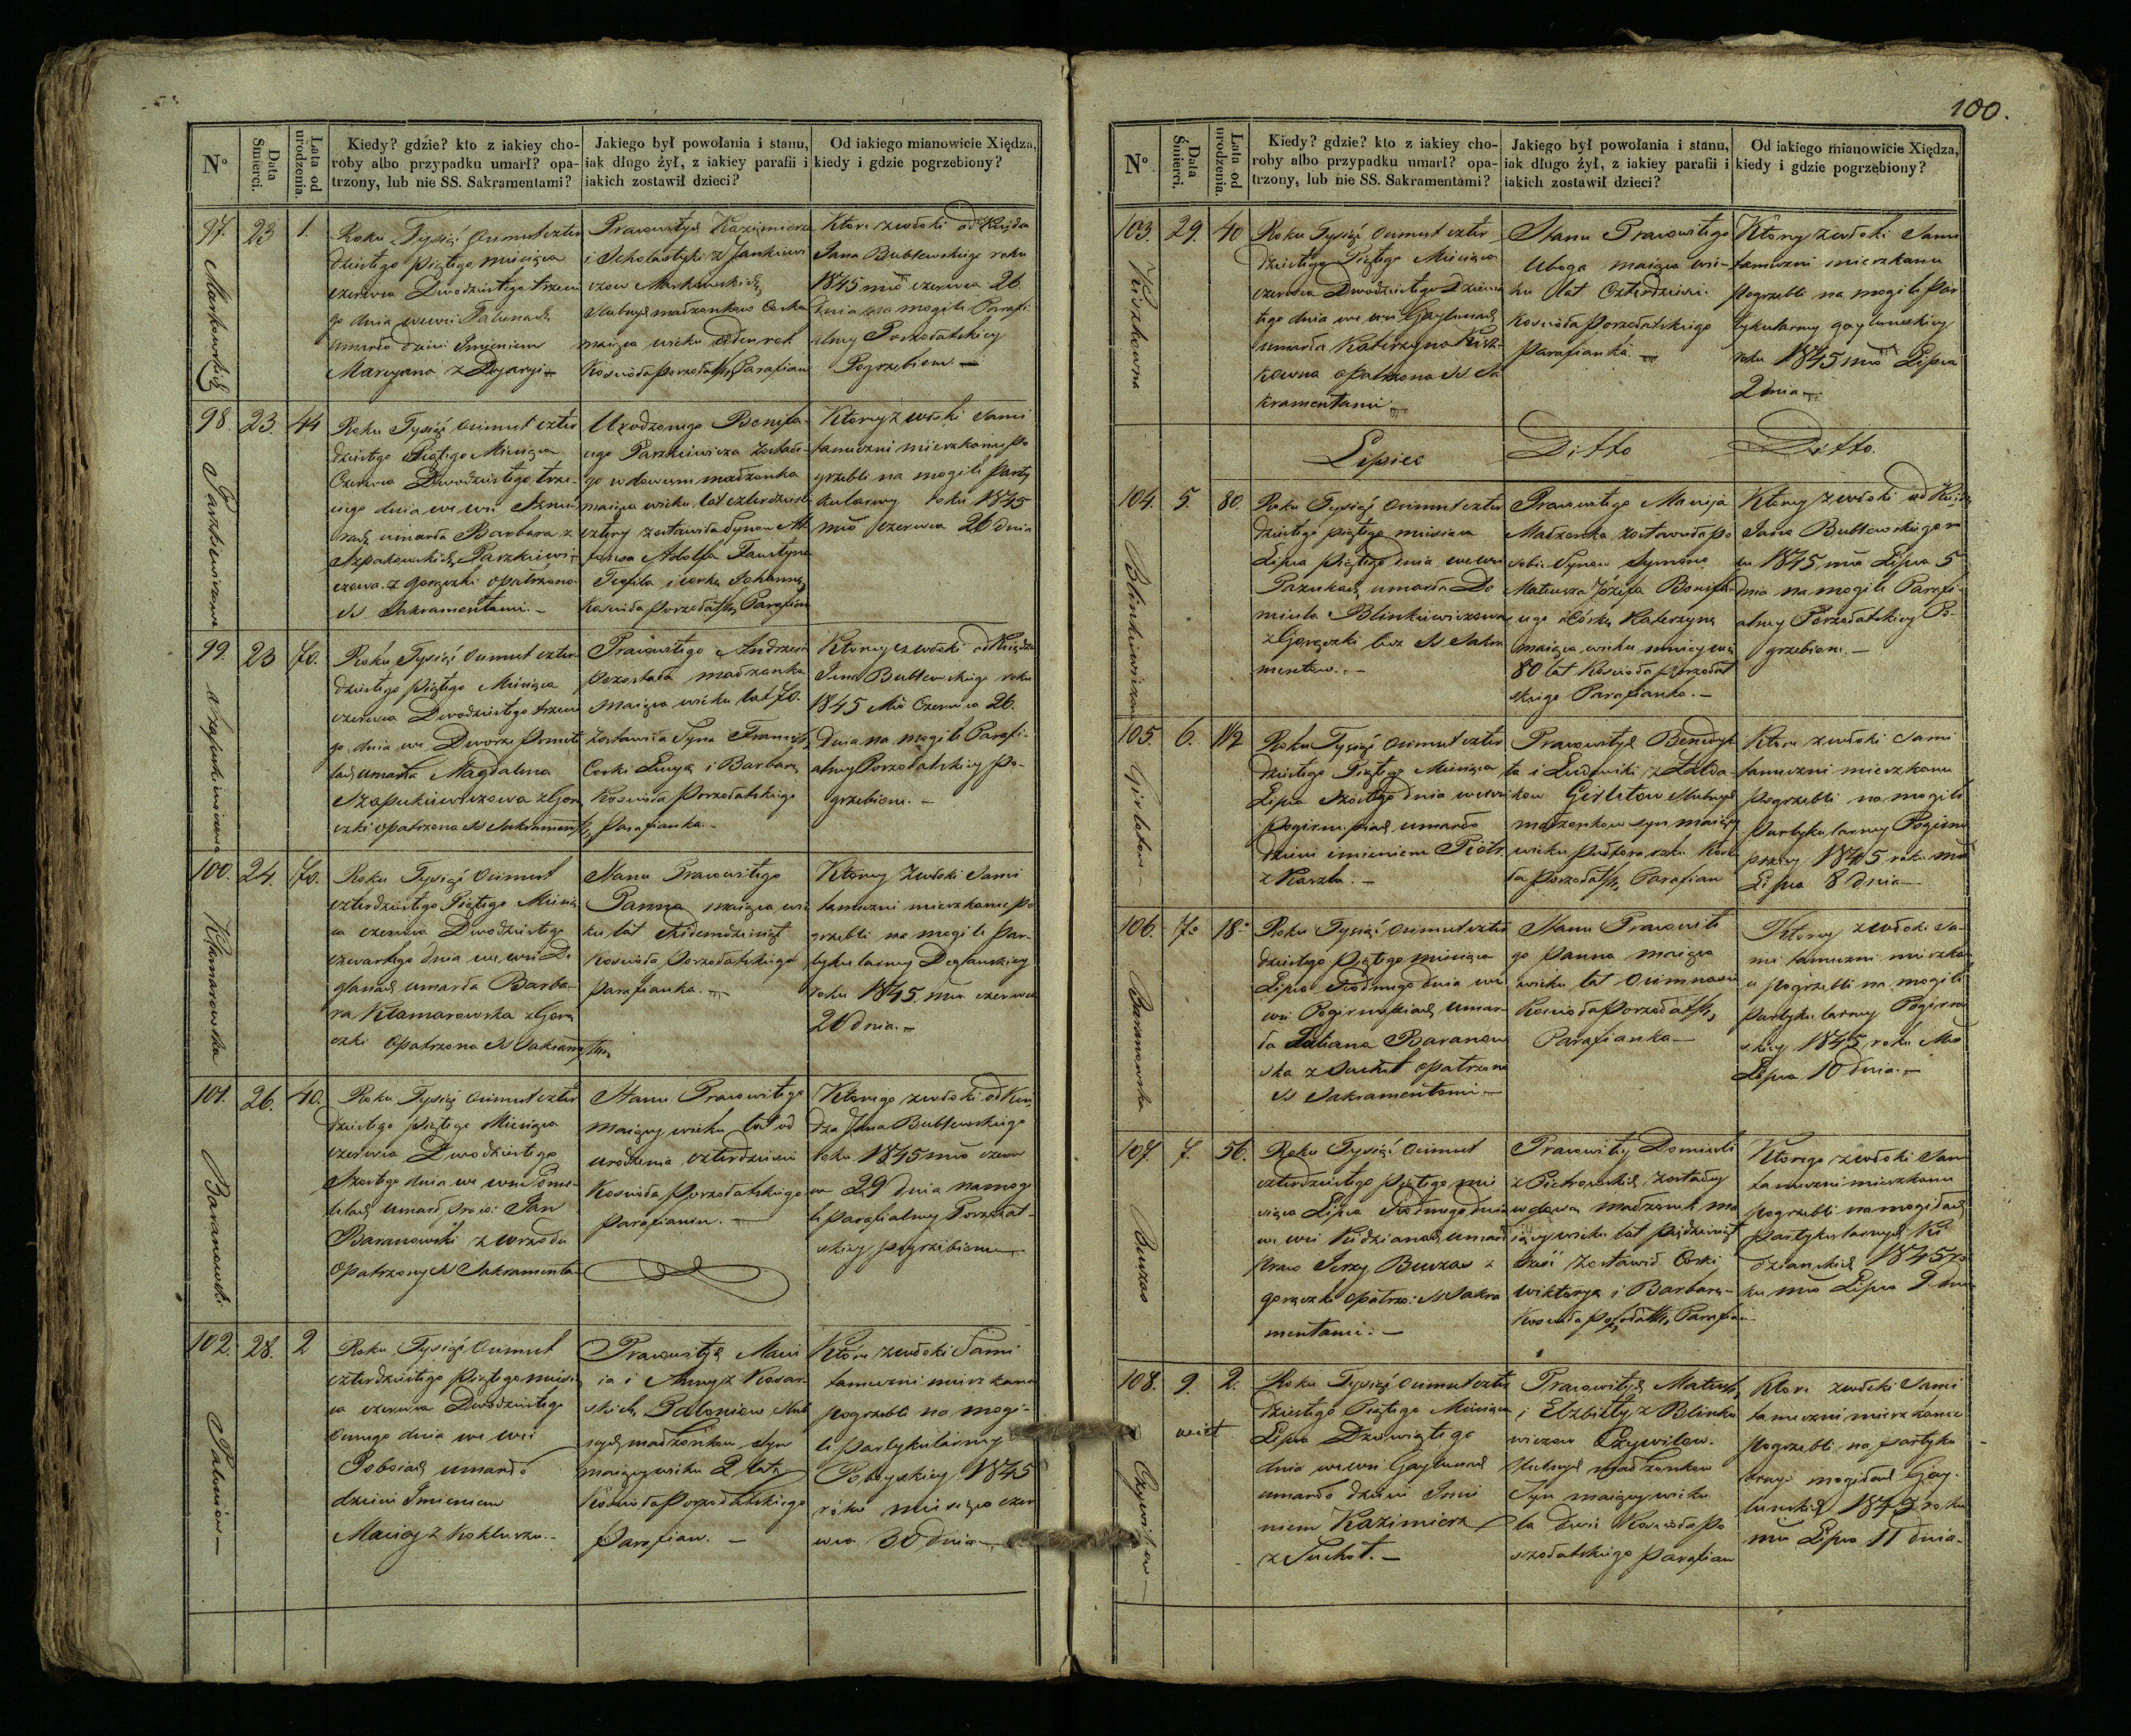 100.
N°
Data Śmierci.
Lata od urodzenia.
Kiedy? gdzie? kto z iakiey cho-
roby albo przypadku umarł? opa-
trzony, lub nie SS. Sakramentami?
Jakiego był powołania i stanu,
iak długo żył, z iakiey parafii i
iakich zostawił dzieci?
Od iakiego mianowicie Xiędza,
kiedy i gdzie pogrzebiony?
97.
23
1.
Markowskich
Roku Tysiąć Osimset czter
dziestego piątego miesiąca
czerwca Dwodziestego trzecie
go dnia we wsi
umarło dzieci Imieniem
Maryana z Dyaryi
Prawowitych Kazimierza
i Scholastyki z Jankiewi
czow Markowskich
slubnych małzonkow Corka
maiąca wieku Ieden rok
Koscioła Porzodatsk: Parafian
Ktore zwłoki od Xiędza
Jana Bublewskiego roku
1845 mca czerwca 26.
dnia na mogile Parafi-
alney Porzodatskiey
Pogrzebione
98.
23.
44
Parzkiewiczowa
Roku Tysiąć Osimset czter
dziestego Piątego Miesiąca
Czerwca Dwodziestego trze-
ciego dnia we wsi
umarła Barbara z
Szpakowskich Parzkiewi-
czowa z Gorączki opatrzona
SS Sakramentami.
Urodzonego Bonifa-
cego Parzkiewicza Zostałe-
go wdowcem małzonka
maiąca wieku lat czterdziesci
cztery zostawiła Synow
Adolfa Faustyna
Teofila i corkę Johannę
Koscioła Porzodatsk: Parafian
Ktorey zwłoki Sami
tameczni mieszkancy po
grzebli na mogile Party
kularney roku 1845
mca czerwca 26 dnia
99.
23
70.
Szapukiewiczowa
Roku Tysiąć Osimset czter
dziestego piątego Miesiąca
czerwca Dwodziestego trzecie
go dnia we Dworze
umarła Magdalena
Szapukiewiczowa z Gorą
czki opatrzona SS Sakrament:
Prawowitego Andrzeia
pozostała małzonka
Maiąca wieku lat 70.
Zostawiła Syna
Corki Ewę i Barbarę
Koscioła Porzodatskiego
Parafianka.
Ktorey zwłoki od Xiędza
Jana Bublewskiego roku
1845 Mca Czerwca 26.
Dnia na mogile Parafi-
alney Porzodatskiey Po-
grzebione.
100.
24.
70.
Klamarowska
Roku Tysiąć Osimset
czterdziestego Piątego Miesią
ca czerwca Dwodziestego
czwartego dnia we wsi De
glanach umarła Barba-
ra Klamarowska z Gorą
czki Opatrzona SS Sakramentami
Stanu Prawowitego
Panna maiąca wie
ku lat Siedemdziesiąt
Koscioła Porzodatskiego
Parafianka.
Ktorey zwłoki Sami
tameczni mieszkancy po
grzebli na mogile Par-
tykularney Deglanskiey
roku 1845 mca czerwca
26 dnia.
101.
26.
40.
Baranowski
Roku Tysiąć Osimset czter
dziestego piątego Miesiąca
czerwca Dwodziestego
Szostego dnia we wsi
umarł Praw: Jan
Baranowski z wrzodu
Opatrzony SS Sakramenta
Stanu Prawowitego
Maiący wieku lat od
urodzenia czterdziesci
Koscioła Porzodatskiego
Parafianin.
Ktorego zwłoki od Xię
dza Jana Bublewskiego
roku 1845 mca czerw
ca 29 dnia na mogi
le parafialney Porzodat-
skiey pogrzebione
102.
28.
2
Paloniow
Roku Tysiąć Osimset
czterdziestego piątego miesią
ca czerwca Dwodziestego
Osmego dnia we wsi
Pobojach umarło
dziecie Imieniem
Maciey z Kokluszu.
Prawowitych Maci
ia i Anny z Kosar-
skich Paloniow slub
nych małzonkow syn
maiący wieku 2 lata
Koscioła Porzodatskiego
Parafian.
Ktore zwłoki Sami
tameczni mieszkance
pogrzebli na mogi-
le partykularney
1845
roku miesiąca czer
wca 30 dnia
N°
Data Śmierci.
Lata od urodzenia.
Kiedy? gdzie? kto z iakiey cho-
roby albo przypadku umarł? opa-
trzony, lub nie SS. Sakramentami?
Jakiego był powołania i stanu,
iak długo żył, z iakiey parafii i
iakich zostawił dzieci?
Od iakiego mianowicie Xiędza,
kiedy i gdzie pogrzebiony?
103.
29.
40
Kiszkowna
Roku Tysiąć Osimset czter
dziestego Piątego Miesiąca
czerwca Dwodziestego Dziewią
tego dnia we wsi Gaylunach
umarła Katerzyna Kisz-
kowna opatrzona SS Sa
kramentami
Stanu Prawowitego
Uboga maiąca wie-
ku lat Czterdziesci
Koscioła Porzodatskiego
Parafianka.
Ktorey zwłoki Sami
tameczni mieszkance
pogrzebli na mogile Par
tykularney gaylunskiey
roku 1845 mca Lipca
2 dnia
Lipiec
Ditto
Ditto.
104.
5.
80.
Blinkiewiczowa
Roku Tysiąć Osimset czter
dziestego piątego miesiąca
Lipca piątego dnia we wsi
Pazukach umarła Do
micela Blinkiewiczowa
z Gorączki bez SS Sakra
mentow.
Prawowitego Macieja
Małzonka zostawiła po
sobie Synow Symona
Mateusza Józefa Bonifa-
cego i Córkę Katerzynę
maiąca wieku mniey więcey
80 lat Koscioła Porzodat
skiego Parafianka.
Ktorey zwłoki od Xiędza
Jana Bublewskiego ro
ku 1845 mca Lipca 5
dnia na mogile Parafi-
alney Porzodatskiey Po-
grzebione.
105.
6.
1/2
Girletow
Roku Tysiąć Osimset czter
dziestego Piątego Miesiąca
Lipca Szostego dnia we wsi
umarło
dziecie imieniem Piotr
z Kaszlu.
Prawowitych Benedyk
ta i Ludowiki z
Girletow slubnych
małzonkow syn maiący
wieku pułtora roku Kosc
ła Porzodatsk: Parafian
Ktore zwłoki Sami
tameczni mieszkance
Pogrzebli na mogile
Partykularney
1845 roku mca
Lipca 8 dnia
106.
7.
18.
Baranowska
Roku Tysiąć Osimset czter
dziestego piątego miesiąca
Lipca Siodmego dnia we
wsi umar-
ła Juliana Baranow
ska z Suchot opatrzona
SS Sakramentami
Stanu Prawowite
go Panna maiąca
wieku lat Osimnascie
Koscioła Porzodatsk:
Parafianka
Ktorey zwłoki Sa-
mi tameczni mieszka
ncy pogrzebli na mogile
Partykularney
1845 roku Mca
Lipca 10 dnia.
107.
7.
56.
Buwzas
Roku Tysiąć Osimset
czterdziestego piątego mie
siąca Lipca Siodmego dnia
we wsi Kidzianach umarł
Praw Jerzy Buwzas z
gorączki opatrzo: SS Sakra
mentami.
Prawowitey Domiceli
z Piotrowskich zostały
wdowcem małzonek ma
iący wieku lat pięćdziesiąt
szesć zostawił Corki
Wiktoryę i Barbarę
Koscioła Porzodatsk: Parafian
Ktorego zwłoki Sami
tameczni mieszkance
pogrzebli na mogiłach
Partykularnych Ki
dzianskich 1845 ro
ku mca Lipca 9 dnia
108.
9.
2.
Czywilow
Roku Tysiąć Osimset czter
dziestego Piątego Miesiąca
Lipca Dziewiątego
dnia we wsi Gaylunach
umarło dziecie Imie
niem Kazimierz
z Suchot.
Prawowitych Mateusza
i Elzbiety z Blinkie
wiczow Czywilow
slubnych małzonkow
Syn maiący wieku
lta dwie Koscioła Po
rzodatskiego Parafian
Ktore zwłoki Sami
tameczni mieszkance
pogrzebli na partyku
larnych mogiłach Gay-
lunskich 1845 roku
mca Lipca 11 dnia